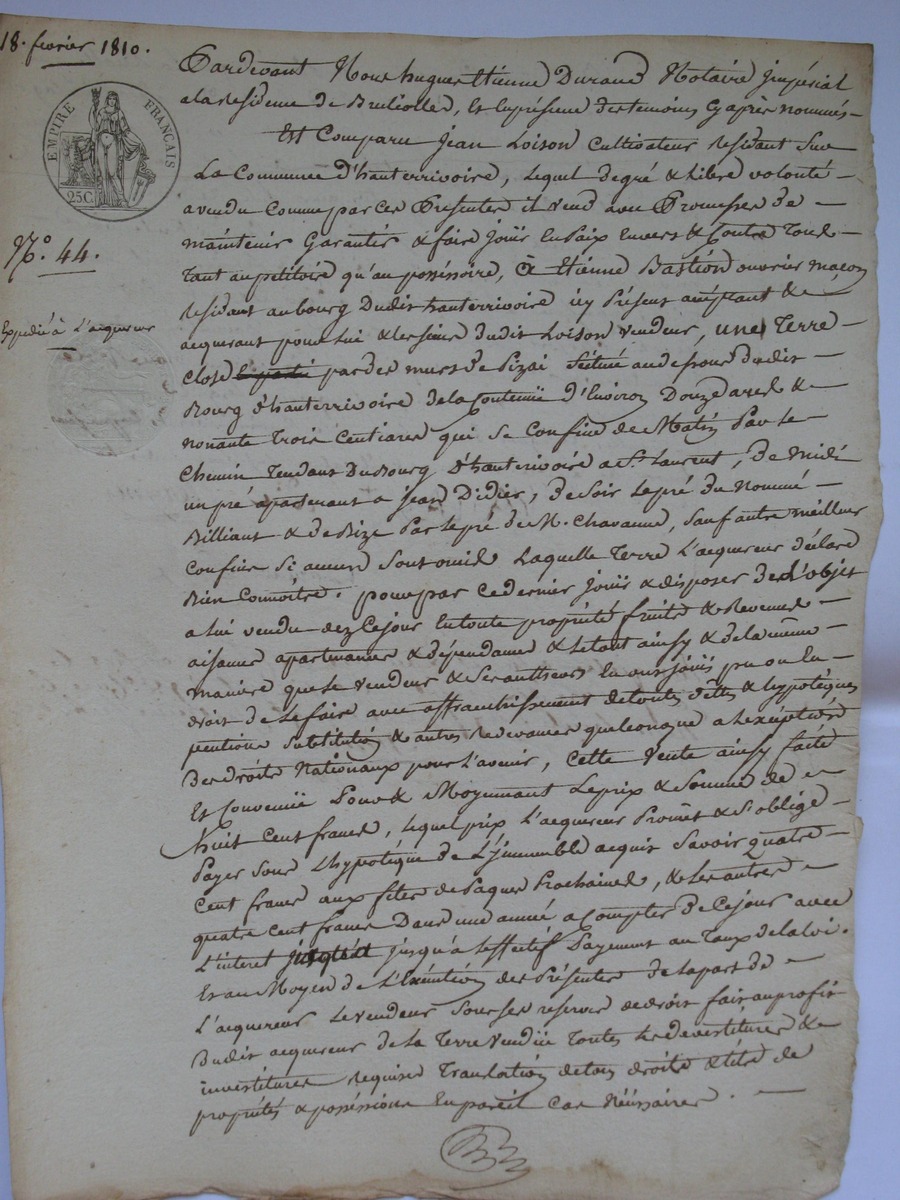 18. fevrier 1810.
EMPIRE FRANÇAIS
25C
N.º 44.
Expedié à L'acquereur
Pardevant Nous hugues Etienne Durand Notaire Jmpérial
a la Residence de Brullolles, Et En présence des temoins Cyaprès nommés –
Est Comparu Jean Loison Cultivateur residant Sur
La Commune D'hauterrivoire, lequel de gré & libre volonté –
a vendu Comme par Ces Presentes il vend avec Promesses de –
maintenir Garantir & faire Jouïr En Paix Envers & Contre Tous
Tant au petitoire qu'au posséssoire, à Etienne Bastion ouvrier maçon
residant au bourg Dudit hauterrivoire icy Présent acceptant &
acquerant pour Lui & les siens dudit Loison vendeur, une Terre –
Close par des murs de Pizai Scituée au dessous dudit –
Bourg d'hauterrivoire de la Contenuë d'Environ Douze ares &
nonante Trois Centiares qui Se Confine de Matin Par Le –
Chemin Tendant Du Bourg d'hauterivoire a St. Laurent, de midi
un pré apartenant a jean Didier, de Soir le pré du Nommé –
Billiant & de Bize Par le pré de M. Chavanne, Sauf autre meilleur
Confins Si aucuns Sont omis Laquelle Terre L'acquereur déclare
Bien Connoitre. pour par ce dernier Jouir & disposer de L'objet
a lui vendu dez Ce jour En toute propriété fruits & Revenus –
aisances apartenances & dépendances & le tout ainsy & de la même –
maniere que le vendeur & Ses autheurs En ont Jouïs pu ou En
droit de Le faire avec affranchissement de toutes dettes & hypotéques
pentions Subtitution & autres Redevances quelconque a L'exception
Des droits Nationaux pour L'avenir, Cette Vente ainsy faite
Et Convenuë Pour & Moyennant Le prix & Somme de –
Huit Cent francs, lequel prix L'acquereur Promet & S'oblige –
Payer Sous L'hypotéque de L'ymmeuble acquis Savoir quatre –
Cent francs aux fêtes de Paques Prochaines, & les autres –
quatre Cent francs Dans une année a Compter de Ce jour avec
L'interet jusqu'à L'effectif Payement au Taux de la Loi.
Et au Moyen de L'Exécution des Présentes de La part de –
L'acquereur Le vendeur Sous Ses reserves de droit fait au profit
Dudit acquereur de La Terre Venduë Toutes les devestitures &
investitures Requises Translation de tous droits & titre de
propriétés & posséssions En pareil Cas Nécessaires. –